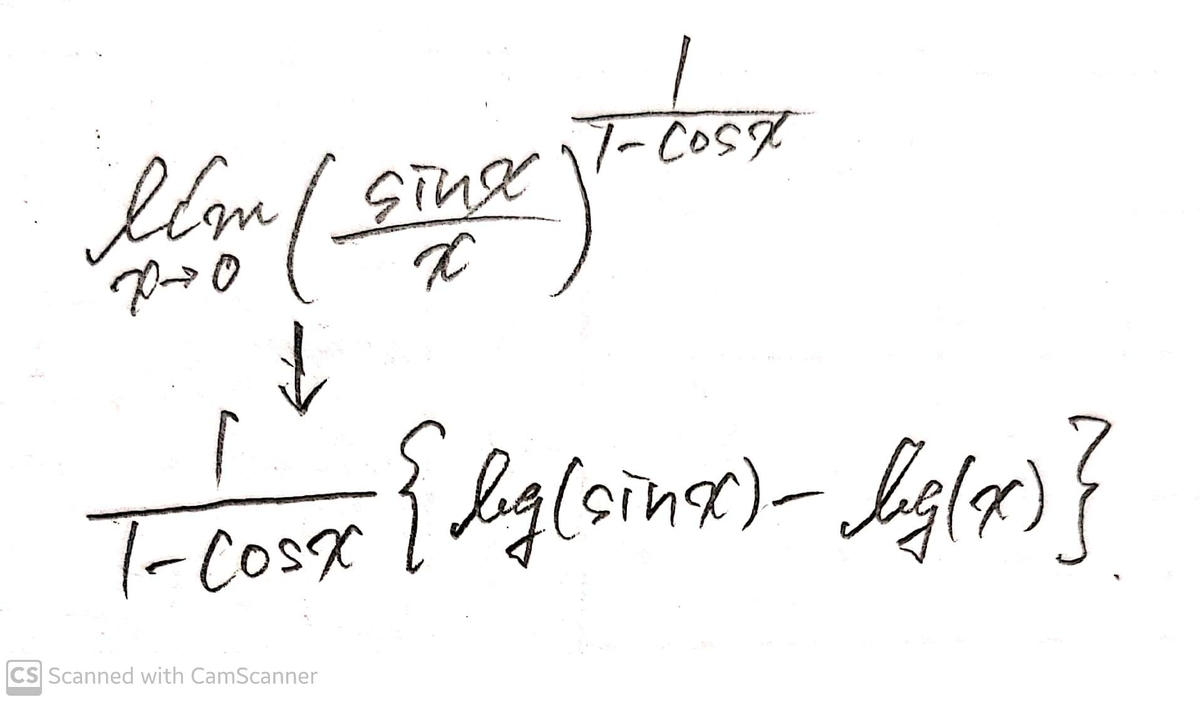 lim_{x→0} (sinx/x)^{1/(1-cosx)}
↓
1/(1-cosx) {log(sinx) - log(x)}
CS Scanned with CamScanner